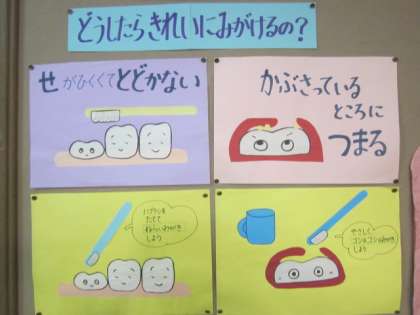 どうしたら きれいにみがけるの？
せがひくくてとどかない
かぶさっている
ところに
つまる
ハブラシを
たてて
みがき
しよう
やさしく
ゴシゴシみがき
しよう